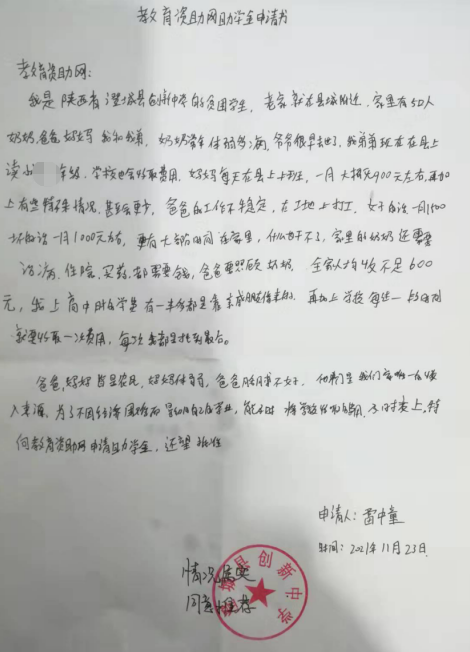 教育资助网助学金申请书
教育资助网:
我是陕西省澄城县创新中学的贫困学生,老家就在县城附近,家里有5口人
奶奶,爸爸,妈妈,我和我弟,奶奶常年体弱多病,爷爷很早去世了,我弟弟现在在县上
读小 年级,学校也会收取费用,妈妈每天在县上上班,一月大概900元左右,再加
上有些特殊情况,甚至会更少,爸爸的工作不稳定,在工地上打工,
一月1000元左右,更有大部分时间在家里,什么也干不了,家里的奶奶还需要
治病,住院,买药,都需要钱,爸爸要照顾奶奶,全家人均收不足600
元,我上高中时的学费有一半都是靠亲戚朋友借来的,再加上学校每隔一段时间
就要收取一次费用,每次 都是拖到最后。
爸爸,妈妈皆是农民,妈妈体弱,爸爸 不太好,他们是我们家唯一的收
入来源,为了不因经济困难而影响自己的学业,能
向教育资助网申请助学金,还望批准
申请人:雷中童
时间:2021年11月23日.
情况属实
同意推荐
澄城县创新中学